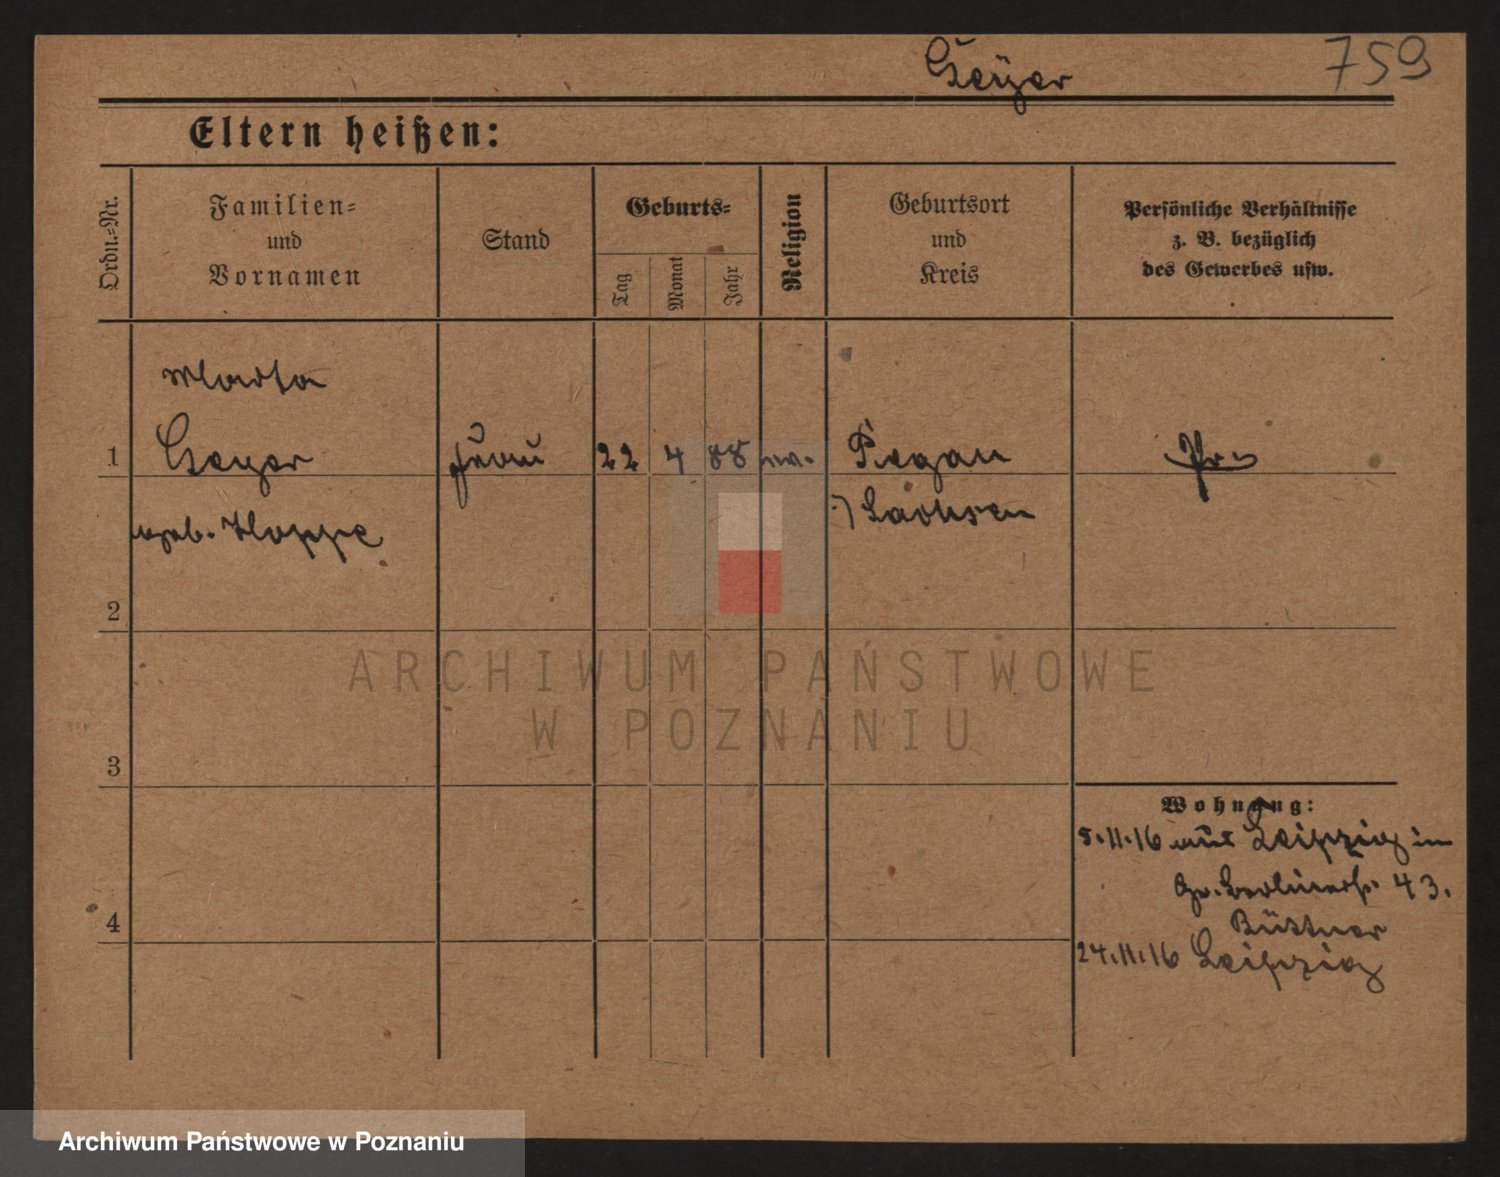 Geÿer
759
Eltern heißen:
Ordn.=Nr.
Familien=
und
Vornamen
Stand
Geburts=
Tag
Monat
Jahr
Religion
Geburtsort
und
Kreis
Persönliche Verhältnisse
z. B. bezüglich
des Gewerbes usw.
Marta
1 Geyer Frau 22 4 88 ev. Pegau Pr.
geb. Hoppe
Sachsen
2
3
4
Wohnung:
5.11.16 aus Leipzig in
Gr. Berlinerstr. 43.
Büttner
24.11.16 Leipzig
ARCHIWUM PAŃSTWOWE
W POZNANIU
Archiwum Państwowe w Poznaniu